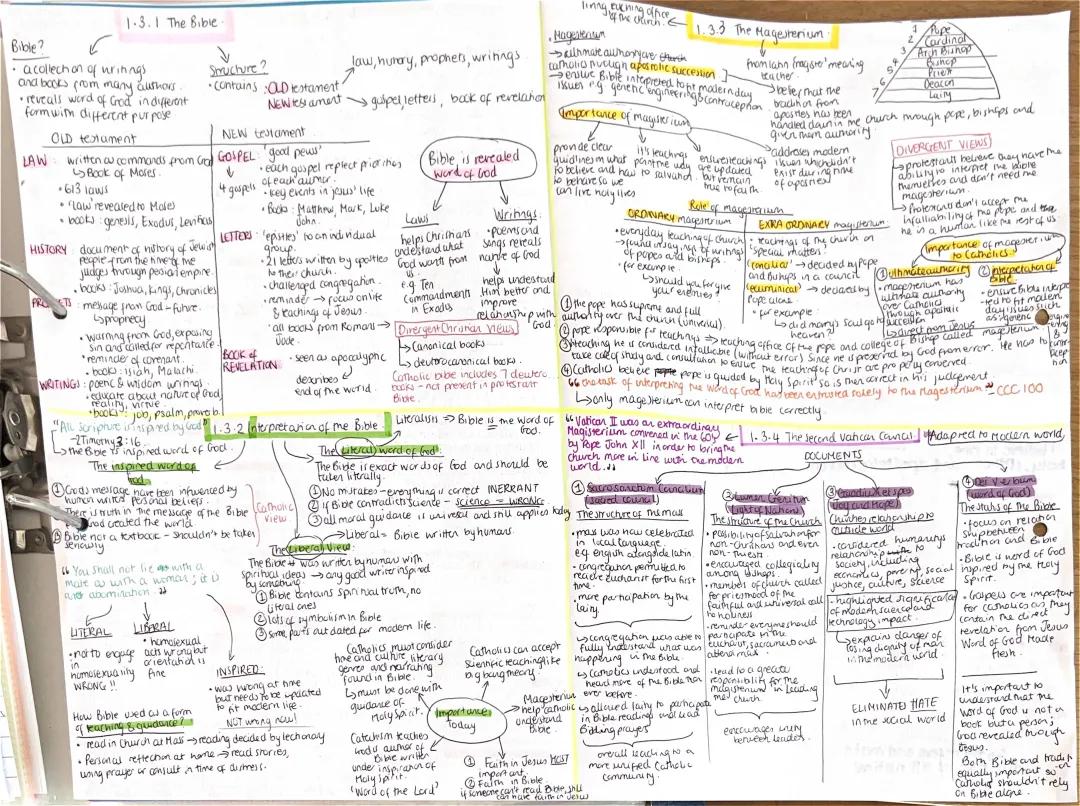 1.3.1 The Bible.
Bible?
• a collection of writings
and books from many authors.
• reveals word of God in different
form with different purpose
Structure?
• contains : OLD testament
law, history, prophets, writings
NEW testament → gospel, letters, book of revelation
OLD testament
LAW: written as commands from God
↳ Book of Moses.
• 613 laws
• 'law' revealed to Moses
• books: genesis, Exodus, Leviticus
HISTORY: document of history of Jewish
people from the time of the
judges through persian empire.
• books: Joshua, kings, chronicles
PROPHETS: message from God – future.
↳ prophecy
• warning from God, exposing
sin and called for repentance.
• reminder of covenant.
• books: isiah, Malachi.
WRITINGS: poetic & wisdom writings.
• educate about nature of God,
reality, virtue.
• books: job, psalm, proverb.
NEW testament
GOSPEL: 'good news'
↓
4 gospels
• each gospel reflect priorities
of each author.
• key events in Jesus' life
• Books: Matthew, Mark, Luke
John.
LETTERS: 'epistles' to an individual
group.
• 21 letters written by apostles
to their church.
• challenged congregation.
• reminder → focus on life
& teachings of Jesus.
• all books from Romans →
Jude.
BOOK of
REVELATION
• seen as apocalyptic
describes
end of the world.
Bible is revealed
word of God
Laws
helps Christians
understand what
God wants from
us.
e.g. Ten
Commandments
in Exodus
Writings:
• poems and
songs reveals
nature of God
helps understand
Him better and
improve
relationship with
God.
Divergent Christian Views
↳ Canonical books
↳ deuterocanonical books.
Catholic bible includes 7 deutero.
books - not present in protestant
Bible.
1.3.3 The Magesterium.
living, teaching office
of the church.
• Magesterium
→ ultimate authority over church
catholics through apostolic succession
→ ensure Bible interpreted to fit modern day
issues e.g. genetic engineering & contraception
from latin 'magister' meaning
teacher.
belief that the
tradition from
apostles has been
handed down in the church through pope, bishops and
given them authority
1 Pope
2 Cardinal
3 Arch Bishop
4 Bishop
5 Priest
6 Deacon
7 Laity
Importance of magisterium
provide clear
guidelines on what
to believe and how
to behave so we
can live holy lives
it's teachings
point the way
to salvation.
ensures teachings
are updated
but remain
true to faith.
addresses modern
issues which didn't
exist during time
of apostles
DIVERGENT VIEWS
↳ protestants believe they have the
ability to interpret the bible
themselves and don't need the
magesterium.
↳ Protestants don't accept the
infalliability of the pope and the
he is a human like the rest of us.
Role of magisterium
ORDINARY magisterium
• everyday teaching of church
→ found in sayings of writings
of popes and bishops.
• for example:
↳ should you forgive
your enemies?
EXTRA ORDINARY magisterium:
• teachings of the church on
special matters.
conciliar → decided by Pope
and Bishops in a council.
ecumenical → decided by
Pope alone.
• for example:
↳ did mary's soul go to
heaven?
Importance of magesterium
to Catholics.
① ultimate authority
• magisterium has
ultimate authority
over Catholics
through apostolic
succession
direct from Jesus
② interpretation of
Bible
• ensure Bible interpre
ted to fit modern
day issues such
as genetic engine
① the pope has supreme and full
authority over the church (universal).
② pope responsible for teachings → teaching office of the pope and college of Bishop called magisterium
③ teaching he is considered infallible (without error) since he is preserved by God from error. He has to
take care of study and consultation to ensure the teaching of Christ are properly conveyed.
④ Catholics believe pope is guided by Holy Spirit so is then correct in his judgement.
"the task of interpreting the Word of God has been entrusted solely to the Magesterium" CCC 100
↳ only magisterium can interpret bible correctly.
1.3.2 Interpretation of the Bible
"All scripture is inspired by God"
- 2 Timothy 3:16
↳ the Bible is inspired word of God.
The inspired word of
God.
① God's message have been influenced by
human writers personal beliefs.
There is truth in the message of the Bible
God created the world.
② Bible not a textbook - shouldn't be taken
seriously
Catholic
View.
"You shall not lie with a
male as with a woman; it is
an abomination."
LITERAL
• not to engage
in
homosexuality
WRONG!!
LIBERAL
• homosexual
acts wrong but
orientation is
fine
INSPIRED:
• was wrong at time
but needs to be updated
to fit modern life.
NOT wrong now!
How Bible used as a form
of teaching & guidance?
• read in Church at Mass → reading decided by lectionary
• Personal reflection at home → read stories,
using prayer or consult in time of distress.
Literalism → Bible is the Word of
God.
The Literal word of God:
The Bible is exact words of God and should be
taken literally.
① No mistakes - everything is correct INERRANT
② if Bible contradicts science - science → WRONG.
③ all moral guidance is universal and still applies today
Liberal = Bible written by humans.
The Liberal View:
The Bible was written by human with
spiritual ideas → any good writer inspired
by something.
① Bible contains spiritual truth, no
literal ones
② lots of symbolism in Bible
③ some parts outdated for modern life.
Importance
today
Catholics must consider
time and culture, literary
genres and narrating
found in Bible.
↳ must be done with
guidance of
Holy Spirit.
Catholics can accept
scientific teaching like
big bang theory.
Magesterium
help catholic
understand
Bible.
Catechism teaches
God is author of
Bible written
under inspiration of
Holy Spirit.
'Word of the Lord'
① Faith in Jesus MOST
important.
② Faith in Bible.
if someone can't read Bible, still
can have faith in Jesus
1.3.4 The second Vatican Council
"Vatican II was an extraordinary
Magisterium convened in the 60s
by Pope John XII in order to bring the
church more in line with the modern
world."
Adapted to Modern world
DOCUMENTS
① Sacrosanctum Concilium
(sacred council)
The structure of the mass
• mass was now celebrated
in local language.
e.g english alongside latin.
• congregation permitted to
receive eucharist for the first
time.
• more participation by the
laity.
↳ congregation was able to
fully understand what was
happening in the Bible.
↳ Catholics understood and
heard more of the Bible than
ever before.
↳ allowed laity to participate
in Bible readings and lead
Bidding prayers
overall leading to a
more unified Catholic
community.
② Lumen Gentium
(light of Nations)
The structure of the Church
• possibility of salvation for
non-christians and even
non-theists
• encouraged collegiality
among bishops.
• members of church called
for priesthood of the
faithful and universal call
to holiness
• reminder everyone should
participate in the
eucharist, sacraments and
attend mass.
• lead to a greater
responsibility for the
magisterium in leading
the church
encourages unity
between leaders.
③ Gaudium et spes
(Joy and Hope)
Churches relationship to
outside world
• considered humanity's
relationship to
society, including
economics, poverty, social
justice, culture, science
• highlighted significance
of modern science and
technology impact.
↳ explain danger of
losing dignity of man
in the modern world.
ELIMINATE HATE
in the social world
④ Dei Verbum
(word of God)
The status of the Bible
• focus on relation
ship between
tradition and Bible
• Bible is word of God
inspired by the Holy
Spirit.
• Gospels are important
for catholics as they
contain the direct
revelation from Jesus
Word of God Made
flesh.
It's important to
understand that the
word of God is not a
book but a person;
God revealed through
Jesus.
Both Bible and tradition
equally important so
Catholic shouldn't rely
on Bible alone.